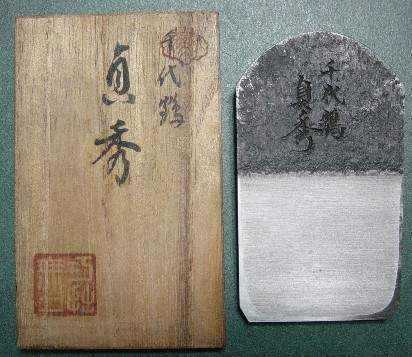 千代鶴
貞秀
千代鶴
貞秀